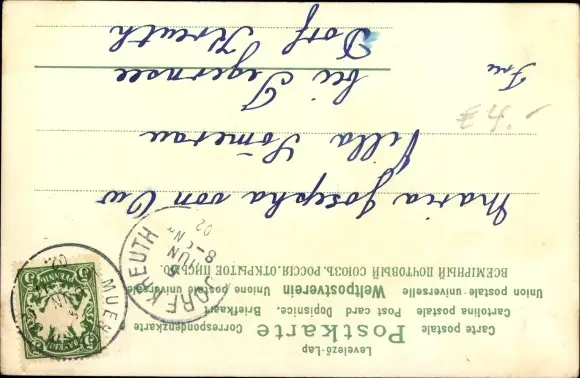 Levelező-Lap
Carte postale Postkarte Correspondenzkarte
Cartolina postale Post card Dopisnice. Briefkaart
Union postale universelle Weltpostverein Unione postale universale
ВСЕМІРНЫЙ ПОЧТОВЫЙ СОЮЗЪ. РОССІЯ. ОТКРЫТОЕ ПИСЬМО.
MUEN
02.
BAYERN
5
DORF KREUTH
5
JUN
8-9 N
02
Maria Josepha von Ow
Villa Sömerau
bei Tegernsee
Dorf Kreuth
Frei